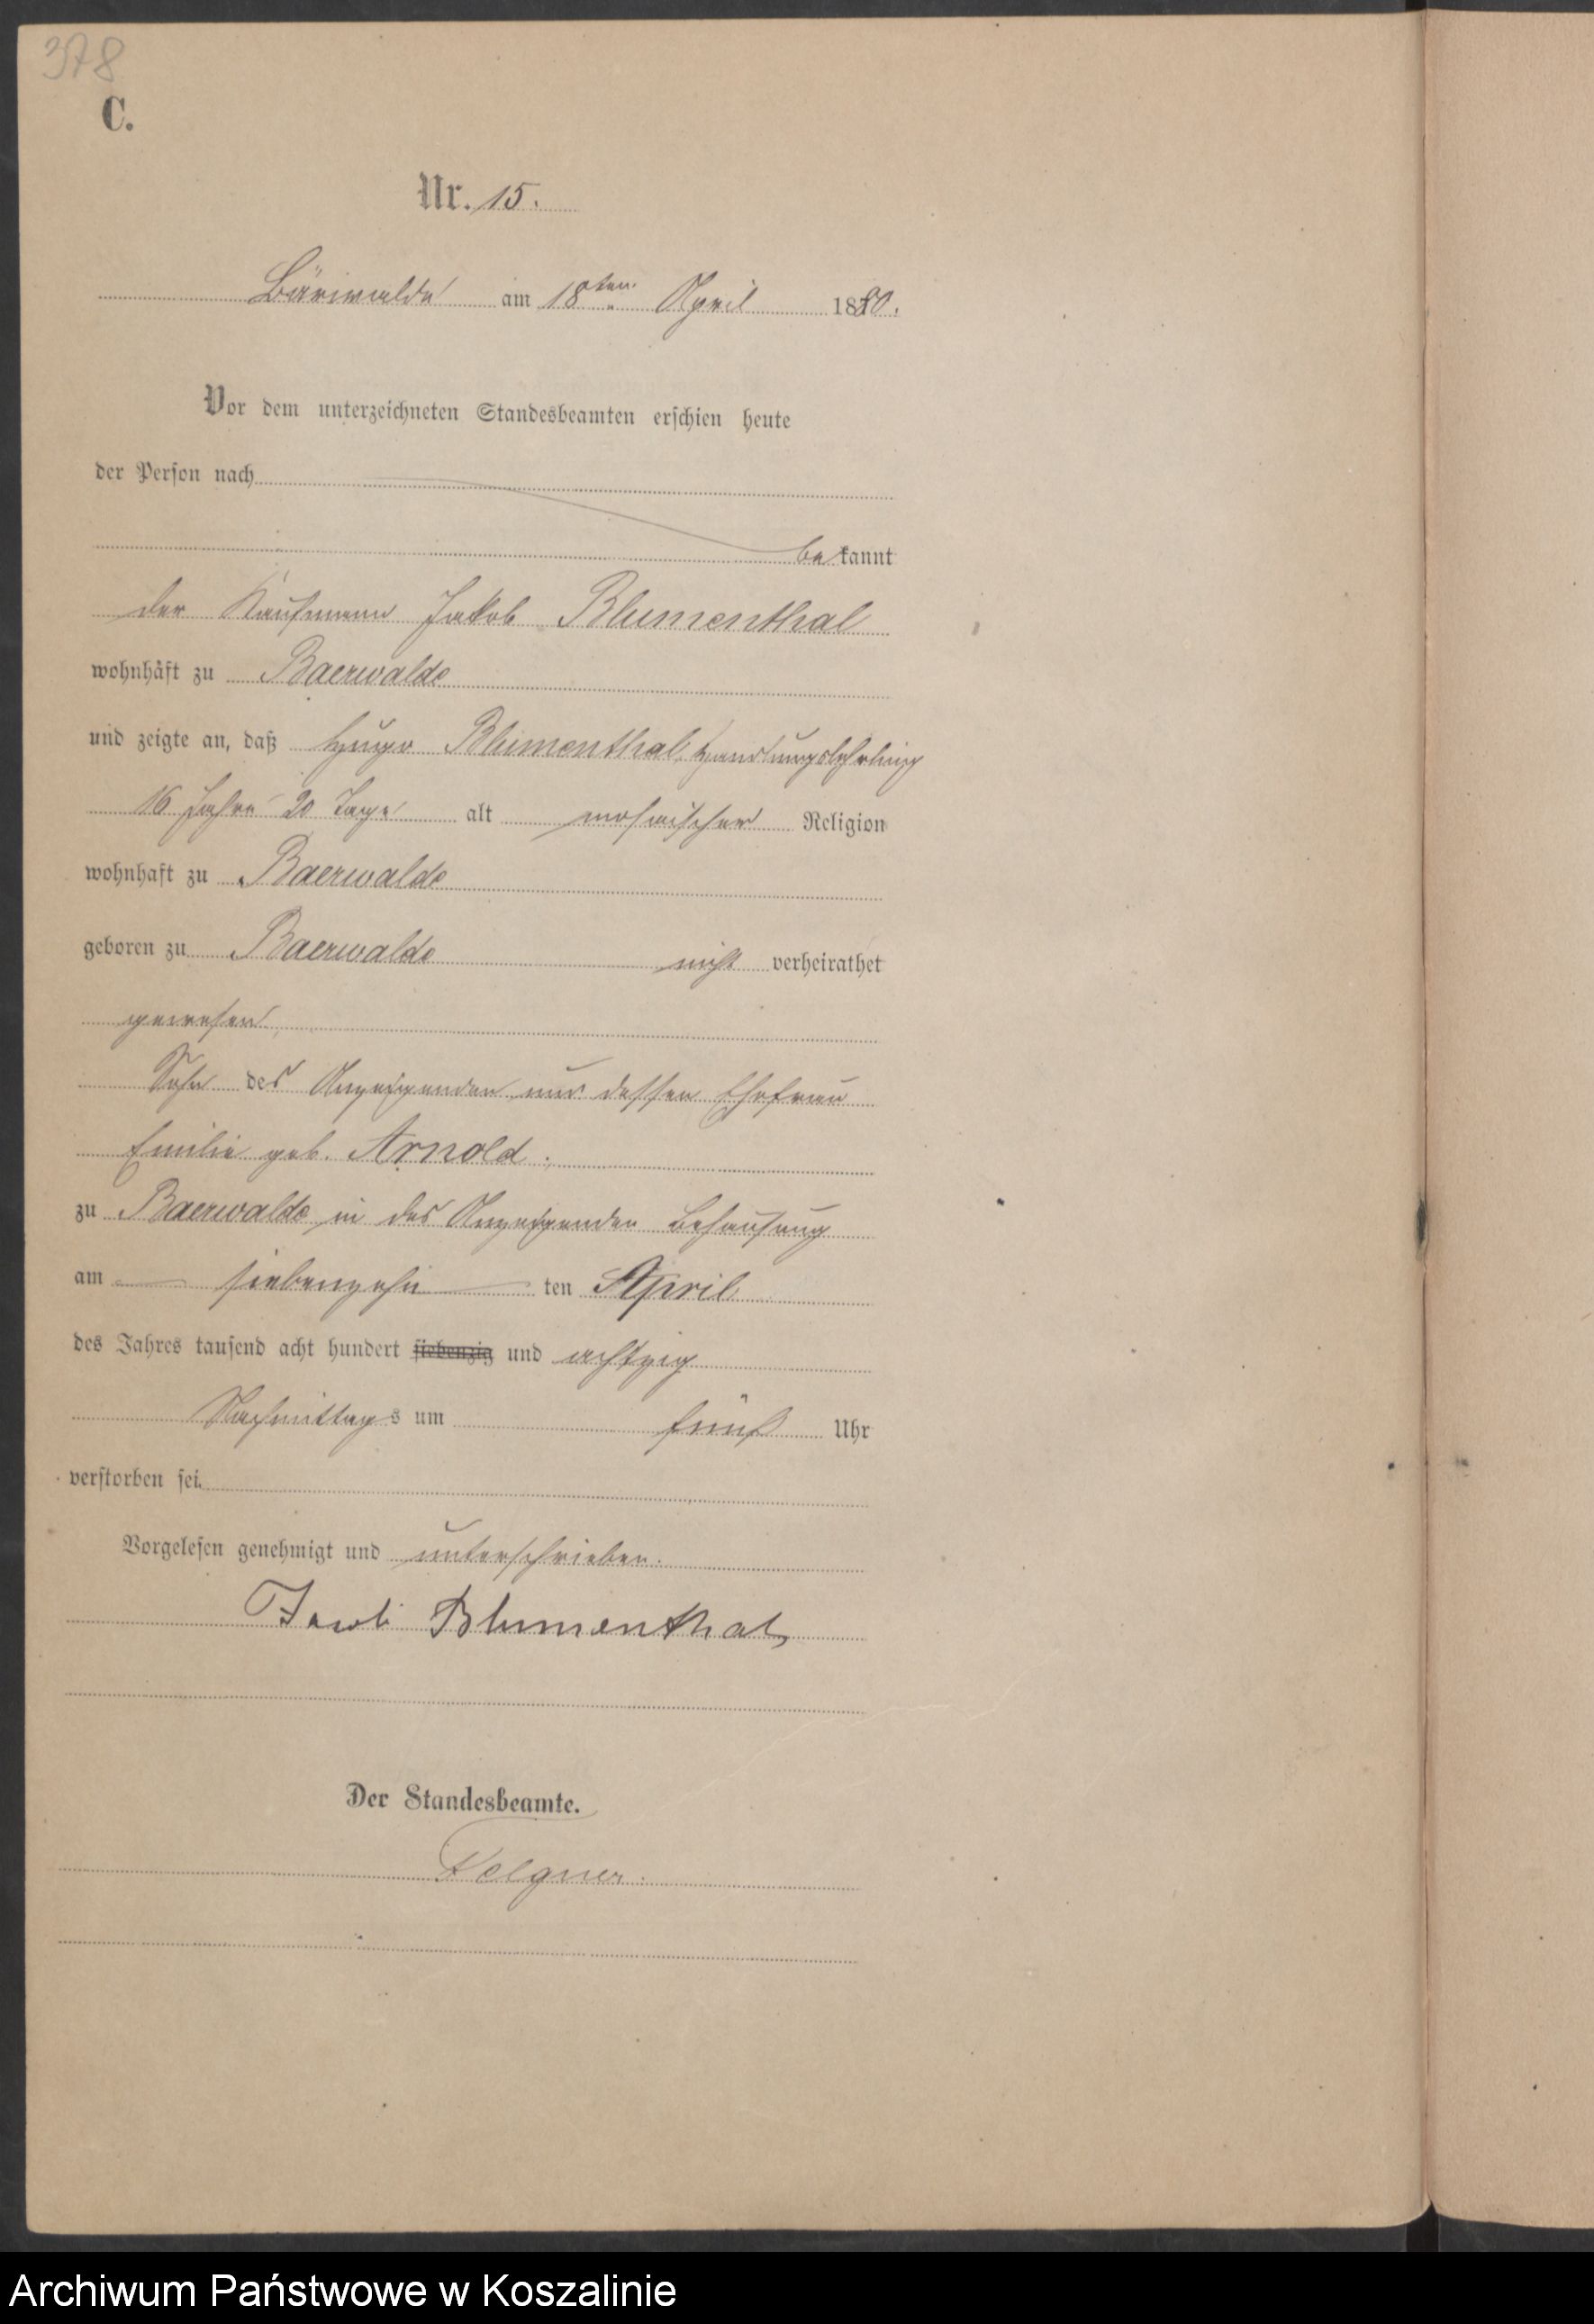 378
C.
Nr. 15.
Bärwalde am 18ten April 1880.
Vor dem unterzeichneten Standesbeamten erschien heute
der Person nach
bekannt
der Kaufmann Jakob Blumenthal
wohnhaft zu Baerwalde
und zeigte an, daß Hugo Blumenthal, Handlungslehrling
16 Jahre 20 Tage alt mosaischer Religion
wohnhaft zu Baerwalde
geboren zu Baerwalde nicht verheirathet
gewesen,
Sohn des Anzeigenden und dessen Ehefrau
Emilie geb. Arnold.
zu Baerwalde in des Anzeigenden Behausung
am siebenzehn ten April
des Jahres tausend acht hundert siebenzig und achtzig
Nachmittags um fünf Uhr
verstorben sei.
Vorgelesen genehmigt und unterschrieben.
Jacob Blumenthal
Der Standesbeamte.
Felgner.
Archiwum Państwowe w Koszalinie